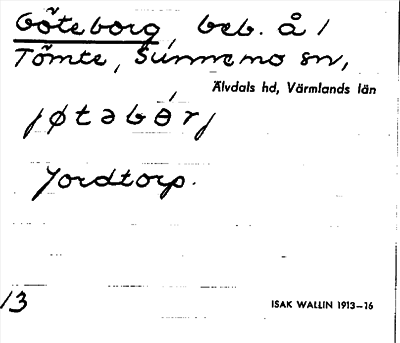 Göteborg, beb. å 1
Tömte, Sunnemo sn,
Älvdals hd, Värmlands län
jøtəbǿrj
Jordtorp.
13
ISAK WALLIN 1913–16